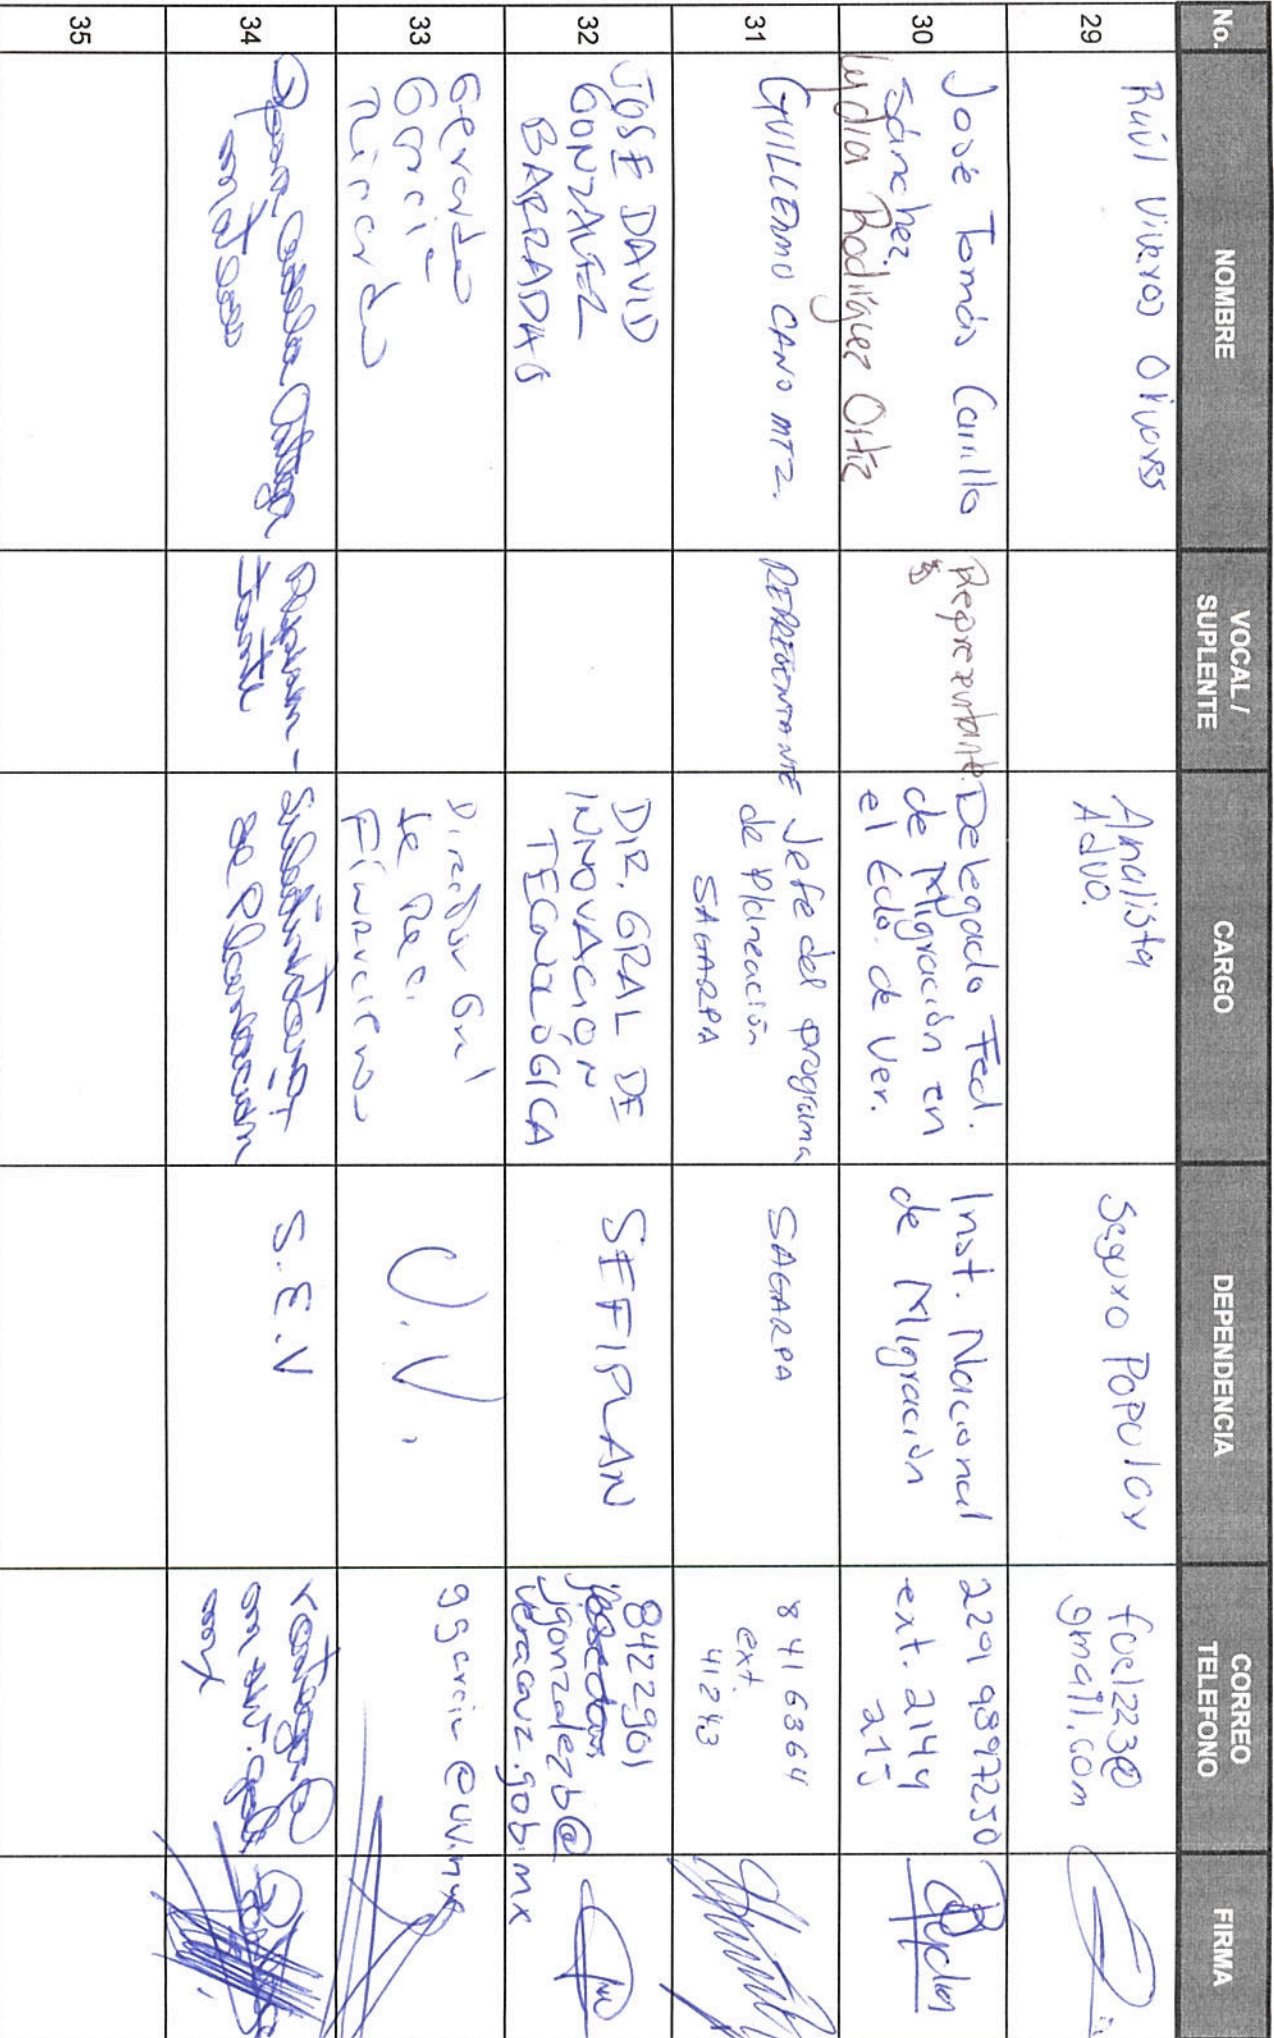 No. NOMBRE VOCAL / SUPLENTE CARGO DEPENDENCIA CORREO TELEFONO FIRMA
29 Raúl Viveros Olivares
Analista
Advo.
Seguro Popular
foel223@
gmail.com
30 José Tomás Carrillo
Sánchez.
Lydia Rodríguez Ortiz
Representante.
Delegado Fed.
de Migración en
el Edo. de Ver.
Inst. Nacional
de Migración
229 9897250
ext. 2144
215
31 GUILLERMO CANO MTZ.
REPRESENTANTE
Jefe del programa
de Planeación
SAGARPA
SAGARPA
8 41 6364
ext.
41243
32 JOSE DAVID
GONZALEZ
BARRADAS
DIR. GRAL DE
INNOVACIÓN
TECNOLÓGICA
SEFIPLAN
8422901
jgonzalezb@
veracruz.gob.mx
33 Gerardo
García
Ricardo
Director Gral
de Rec.
Financieros
U.V.
ggarcia@uv.mx
34
Represen-
tante
Subdirectora
de Planeación
S.E.V
35